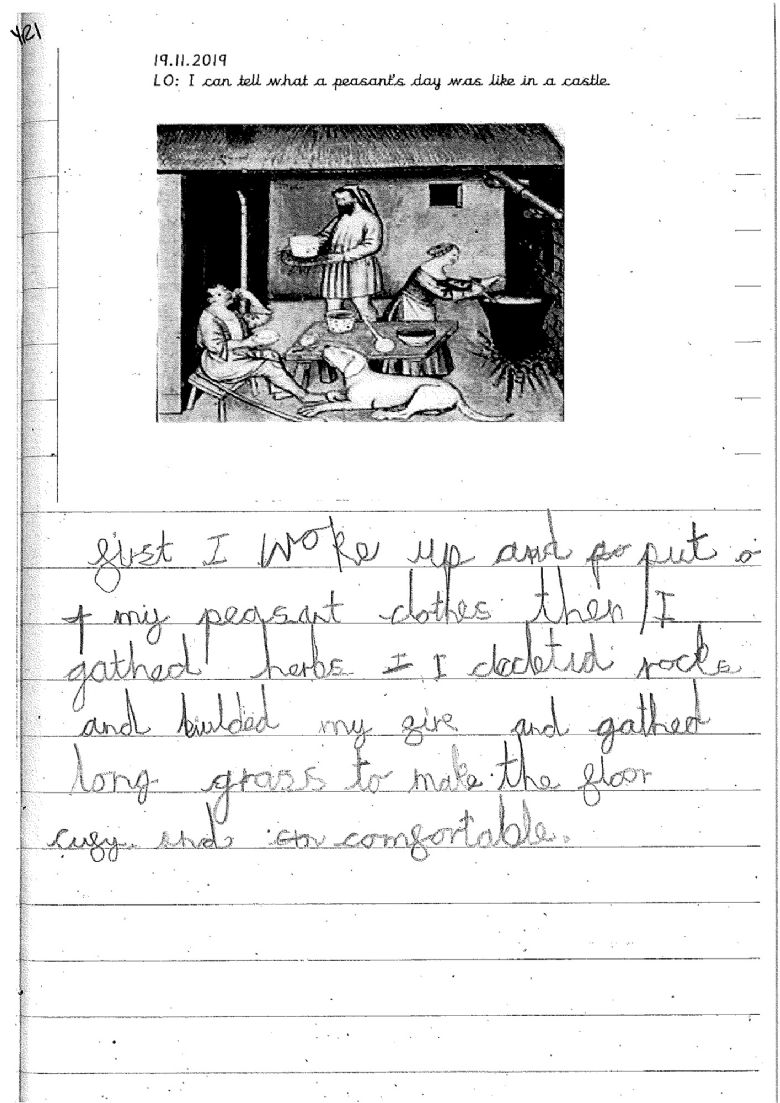 YR1
19.11.2019
LO: I can tell what a peasant's day was like in a castle.
first I woke up and po put o
t my peasant clothes then I
gathed herbs I I clocletid rocks
and biulded my fire and gathed
long grass to make the floor
cuzy and comfortable.